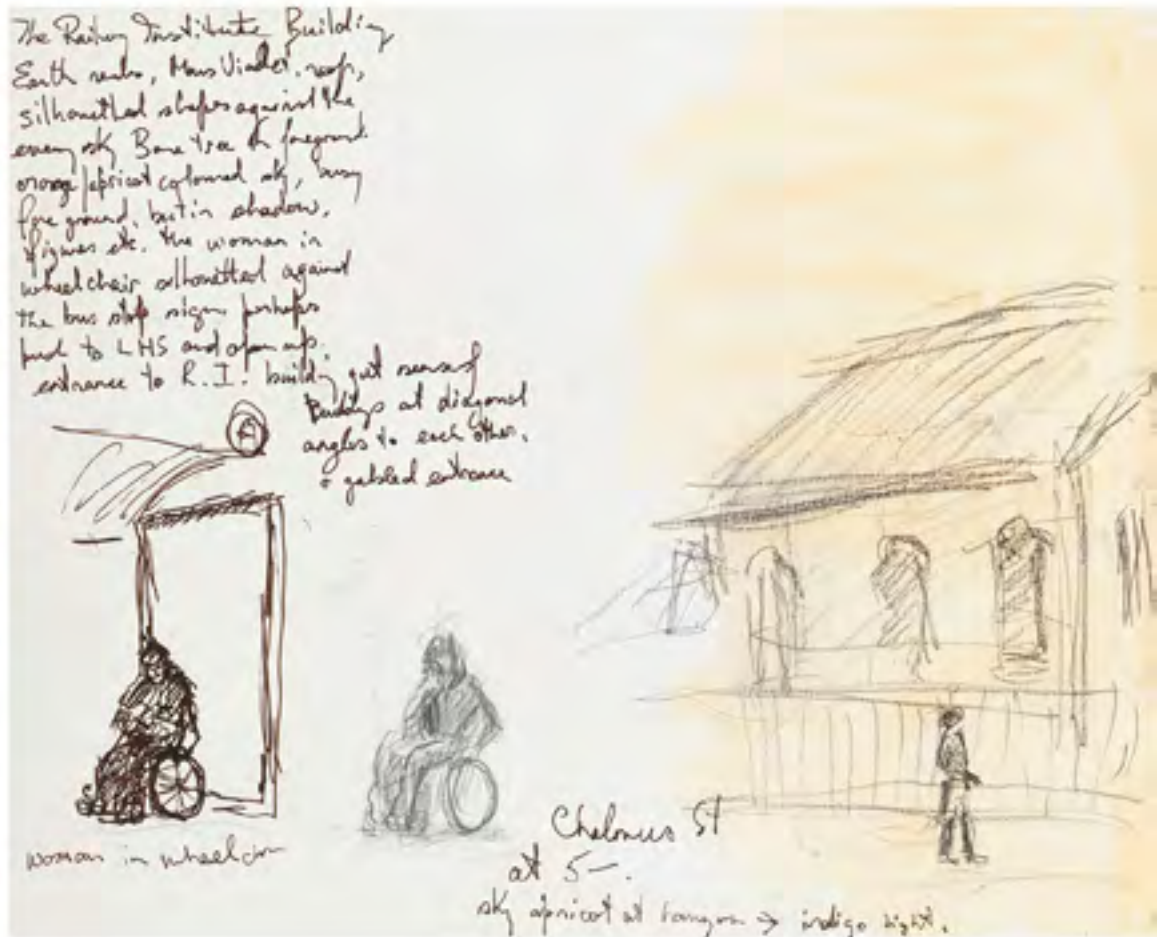 The Railway Institute Building
Earth reds, Mars Violet, roof,
silhouetted shapes against the
evening sky Bare tree in foreground
orange/apricot coloured sky, busy
fore ground, but in shadow,
figures etc. the woman in
wheelchair silhouetted against
the bus stop sign perhaps
to LHS and open up
entrance to R.I. building get sense of
at diagonal
angles to each other.
gabled entrance
woman in wheelchair
St
at 5
sky apricot at horizon → indigo light.